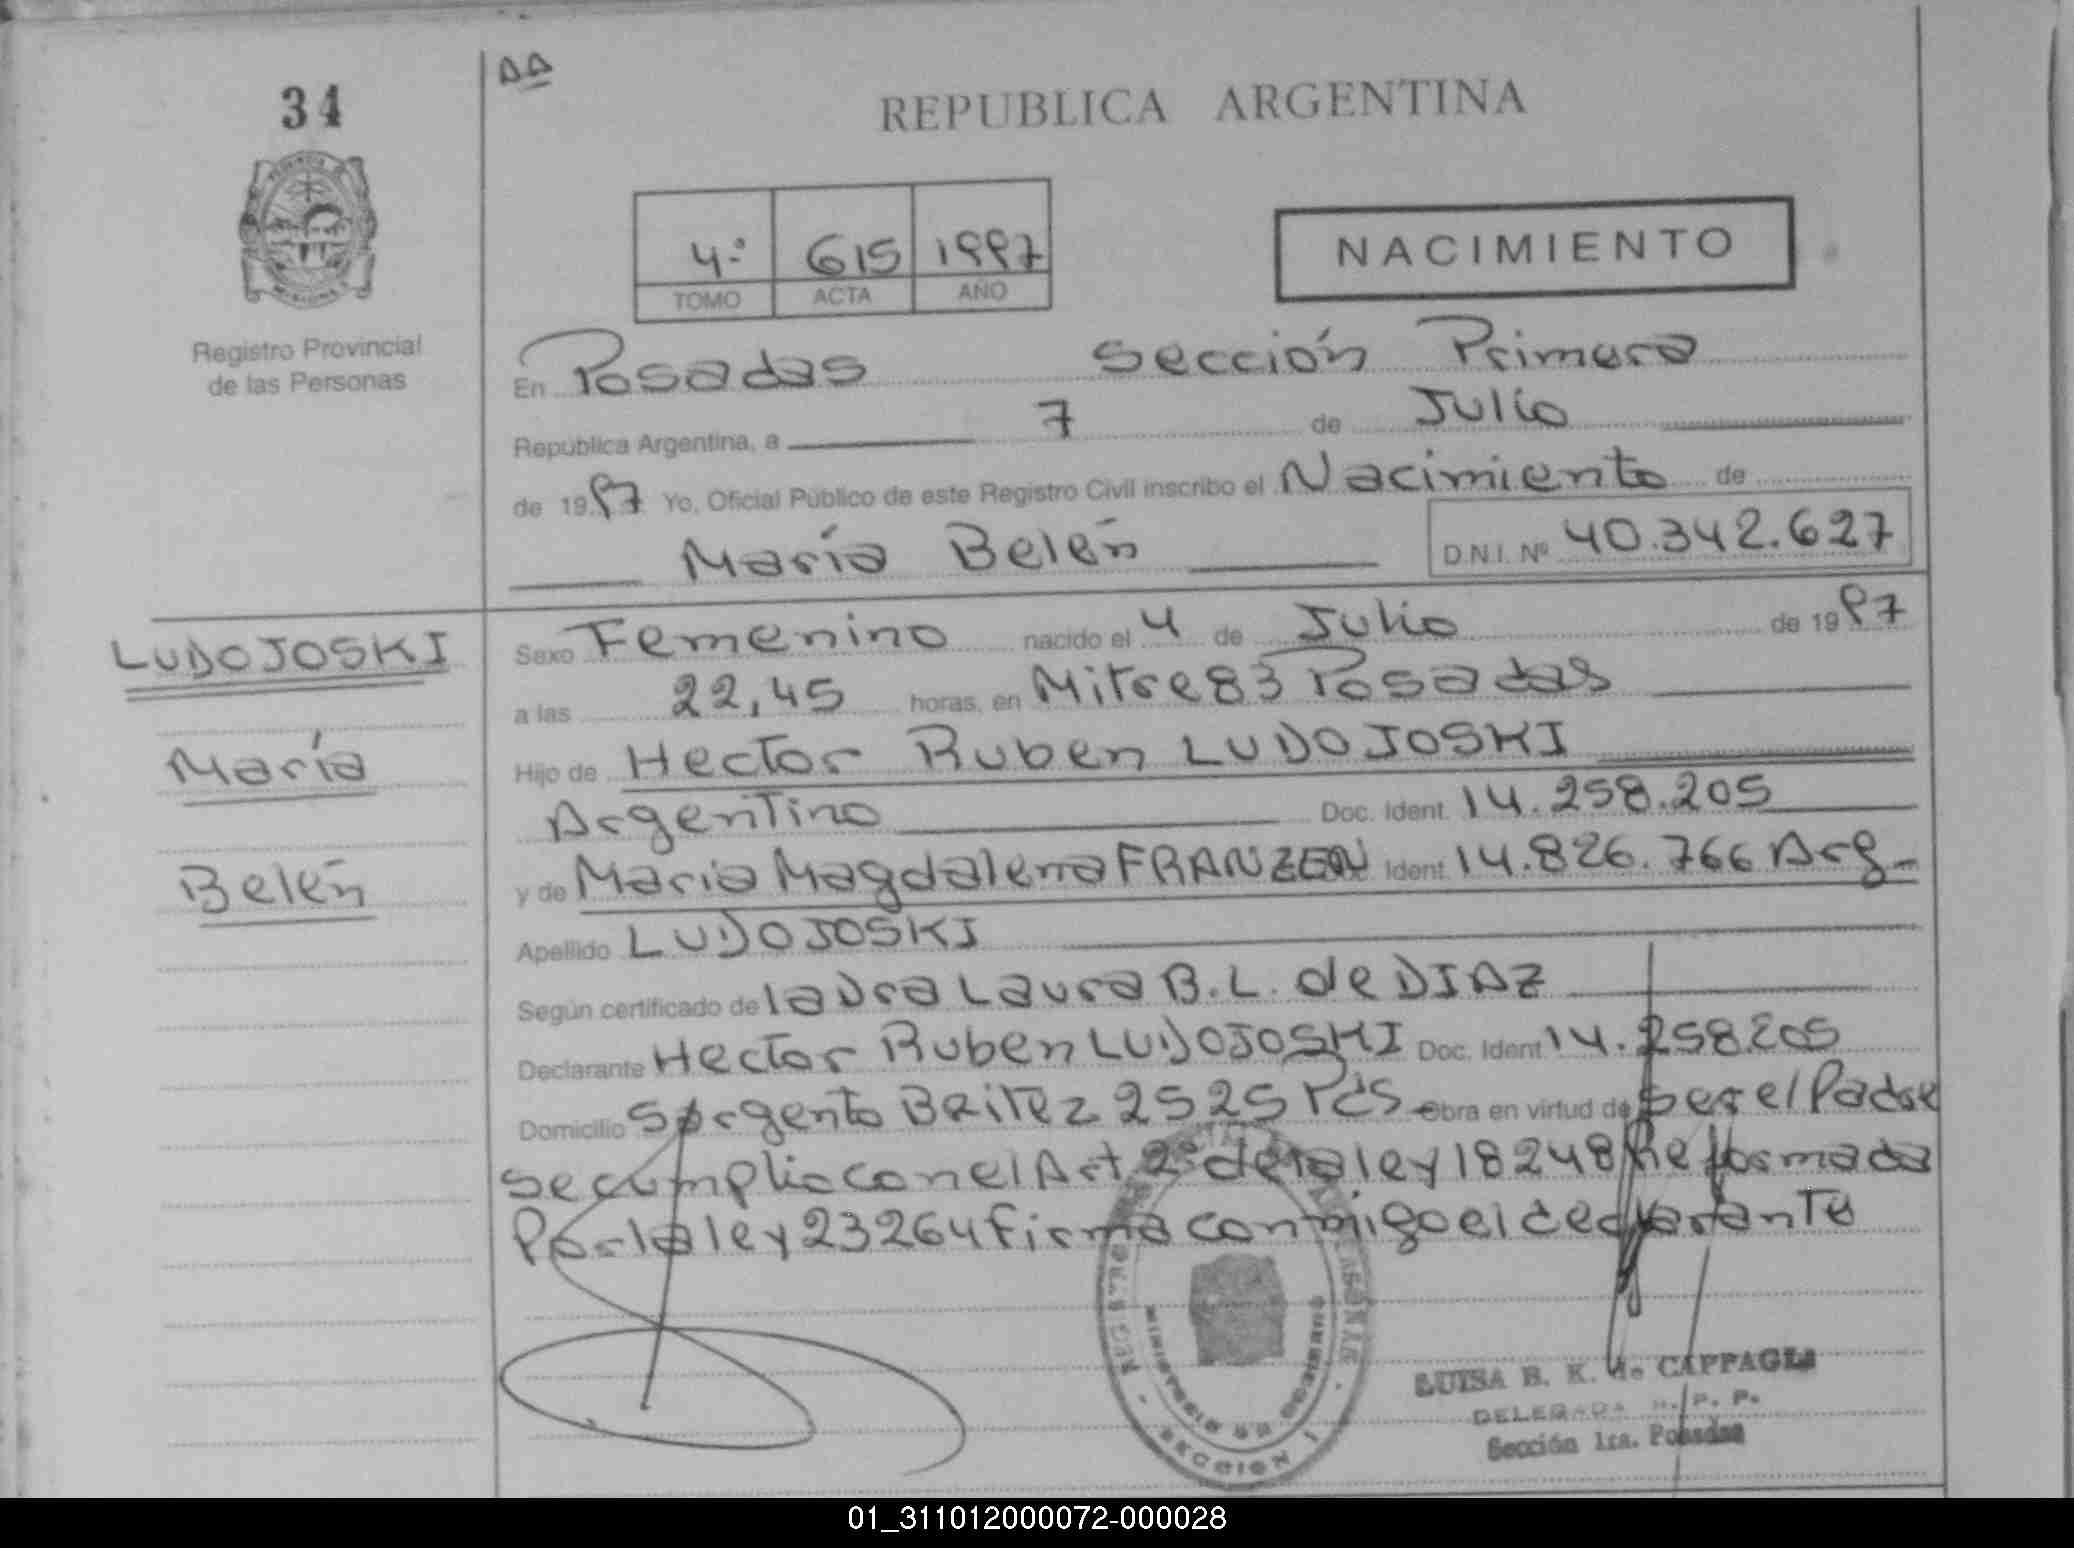 34
AA
REPUBLICA ARGENTINA
4º 615 1997
TOMO ACTA AÑO
NACIMIENTO
Registro Provincial
de las Personas
En Posadas Sección Primera
República Argentina, a 7 de Julio
de 1997 Yo, Oficial Público de este Registro Civil inscribo el Nacimiento de
María Belén D.N.I. Nº 40.342.627
LUDOJOSKI
María
Belén
Sexo Femenino nacido el 4 de Julio de 1997
a las 22,45 horas, en Mitre 83 Posadas
Hijo de Hector Ruben LUDOJOSKI
Argentino Doc. Ident. 14.258.205
y de Maria Magdalena FRANZEN Ident. 14.826.766 Arg-
Apellido LUDOJOSKI
Según certificado de la Dra Laura B. L. de DIAZ
Declarante Hector Ruben LUDOJOSKI Doc. Ident 14.258205
Domicilio Sargento Britez 2525 Pdas Obra en virtud de ser el Padre
se cumplio con el Art 2º de la ley 18248 Reformada
Por la ley 23264 firma conmigo el declarante
SECCION I
LUISA B. K. de CAPPAGLI
DELEGADA R. P. P.
Sección 1ra. Posadas
01_311012000072-000028